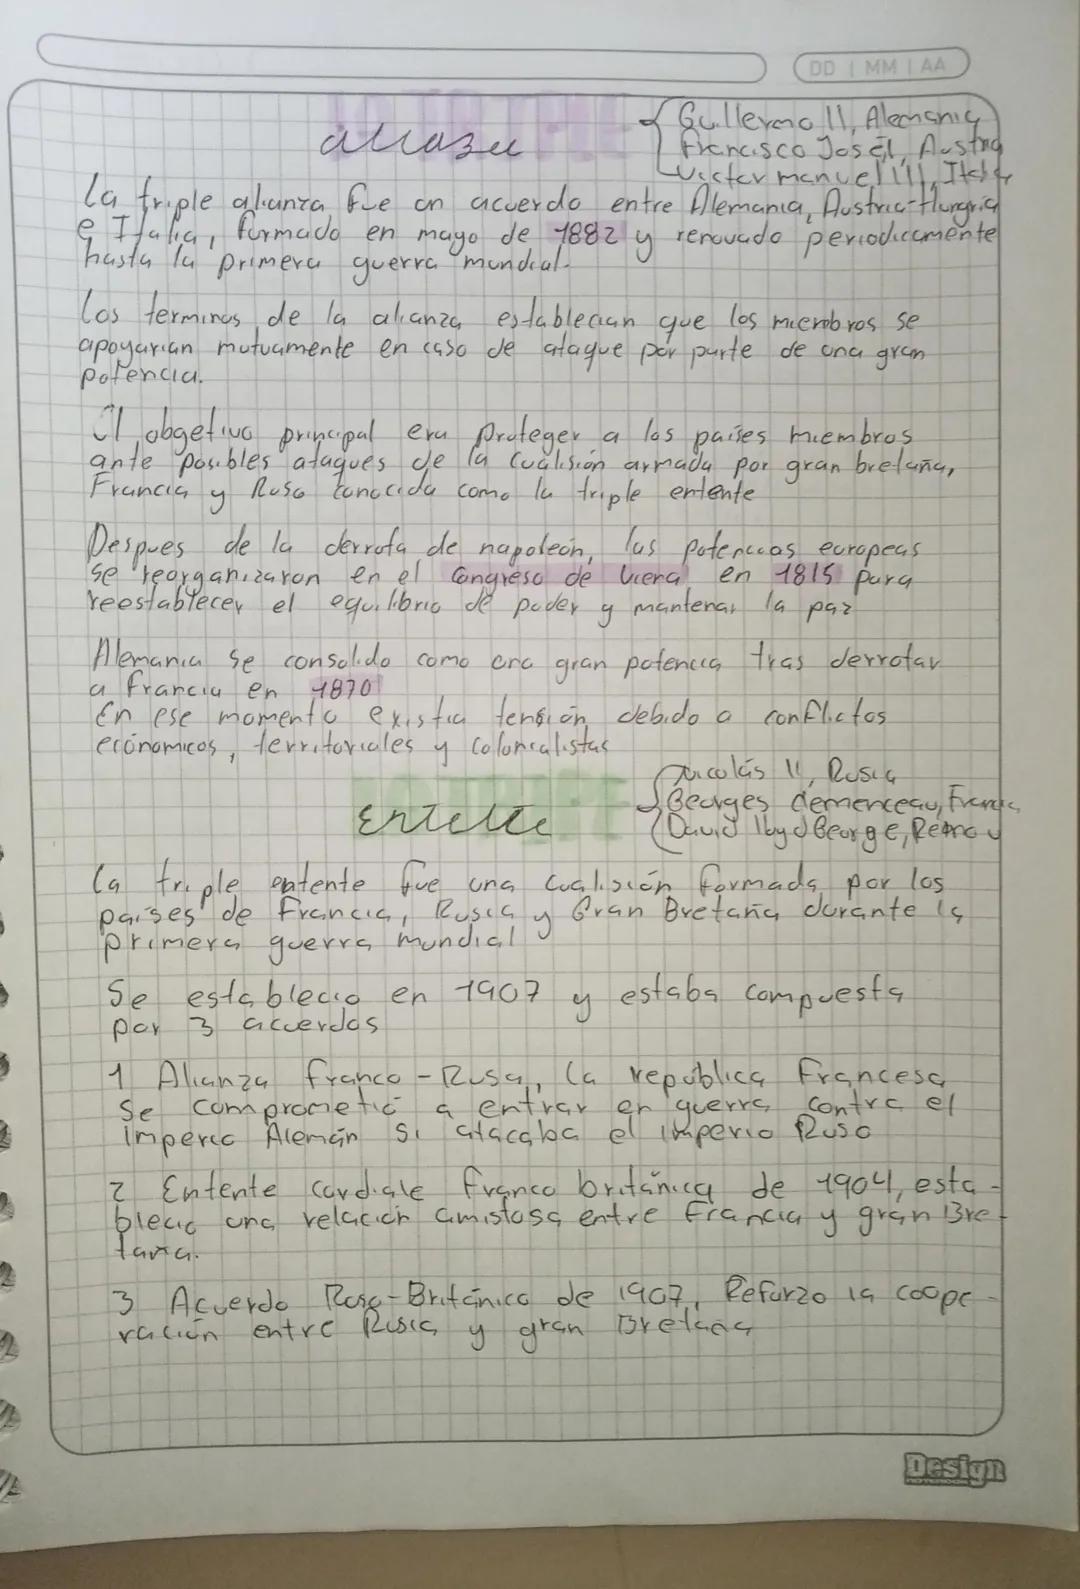 DD | MM | AA
LA TRIPLE
alianza
Guillermo II, Alemania
Francisco José I, Austria
Victor manuel III, Italia
La triple alianza fue un acuerdo entre Alemania, Austria-Hungria
e Italia, formado en mayo de 1882 y renovado periodicamente
hasta la primera guerra mundial.
Los terminos de la alianza establecian que los miembros se
apoyarian mutuamente en caso de ataque por parte de una gran
potencia.
El obgetivo principal era proteger a los países miembros
ante posibles ataques de la cualisión armada por gran bretaña,
Francia y Rusa conocida como la triple entente
Despues de la derrota de napoleón, las potencias europeas
se reorganizaron en el Congreso de Viena en 1815 para
reestablecer el equilibrio de poder y mantener la paz
Alemania se consolido como una gran potencia tras derrotar
a francia en 1870
En ese momento existia tensión debido a conflictos
económicos, territoriales y colonialistas
Entente
Nicolás II, Rusia
Georges clemenceau, Francia
David lloyd George, Reino u
La triple entente fue una cualisión formada por los
países de Francia, Rusia y Gran Bretaña durante la
primera guerra mundial
Se establecio en 1907 y estaba compuesta
por 3 acuerdos
1 Alianza franco-Rusa, La república Francesa
se comprometió a entrar en guerra contra el
imperio Alemán si atacaba el imperio Ruso
2 Entente cordiale franco británica de 1904, esta-
blecio una relación amistosa entre Francia y gran Bre-
taña.
3 Acuerdo Ruso-Británico de 1907, Reforzo la coope-
ración entre Rusia y gran Bretaña
Design